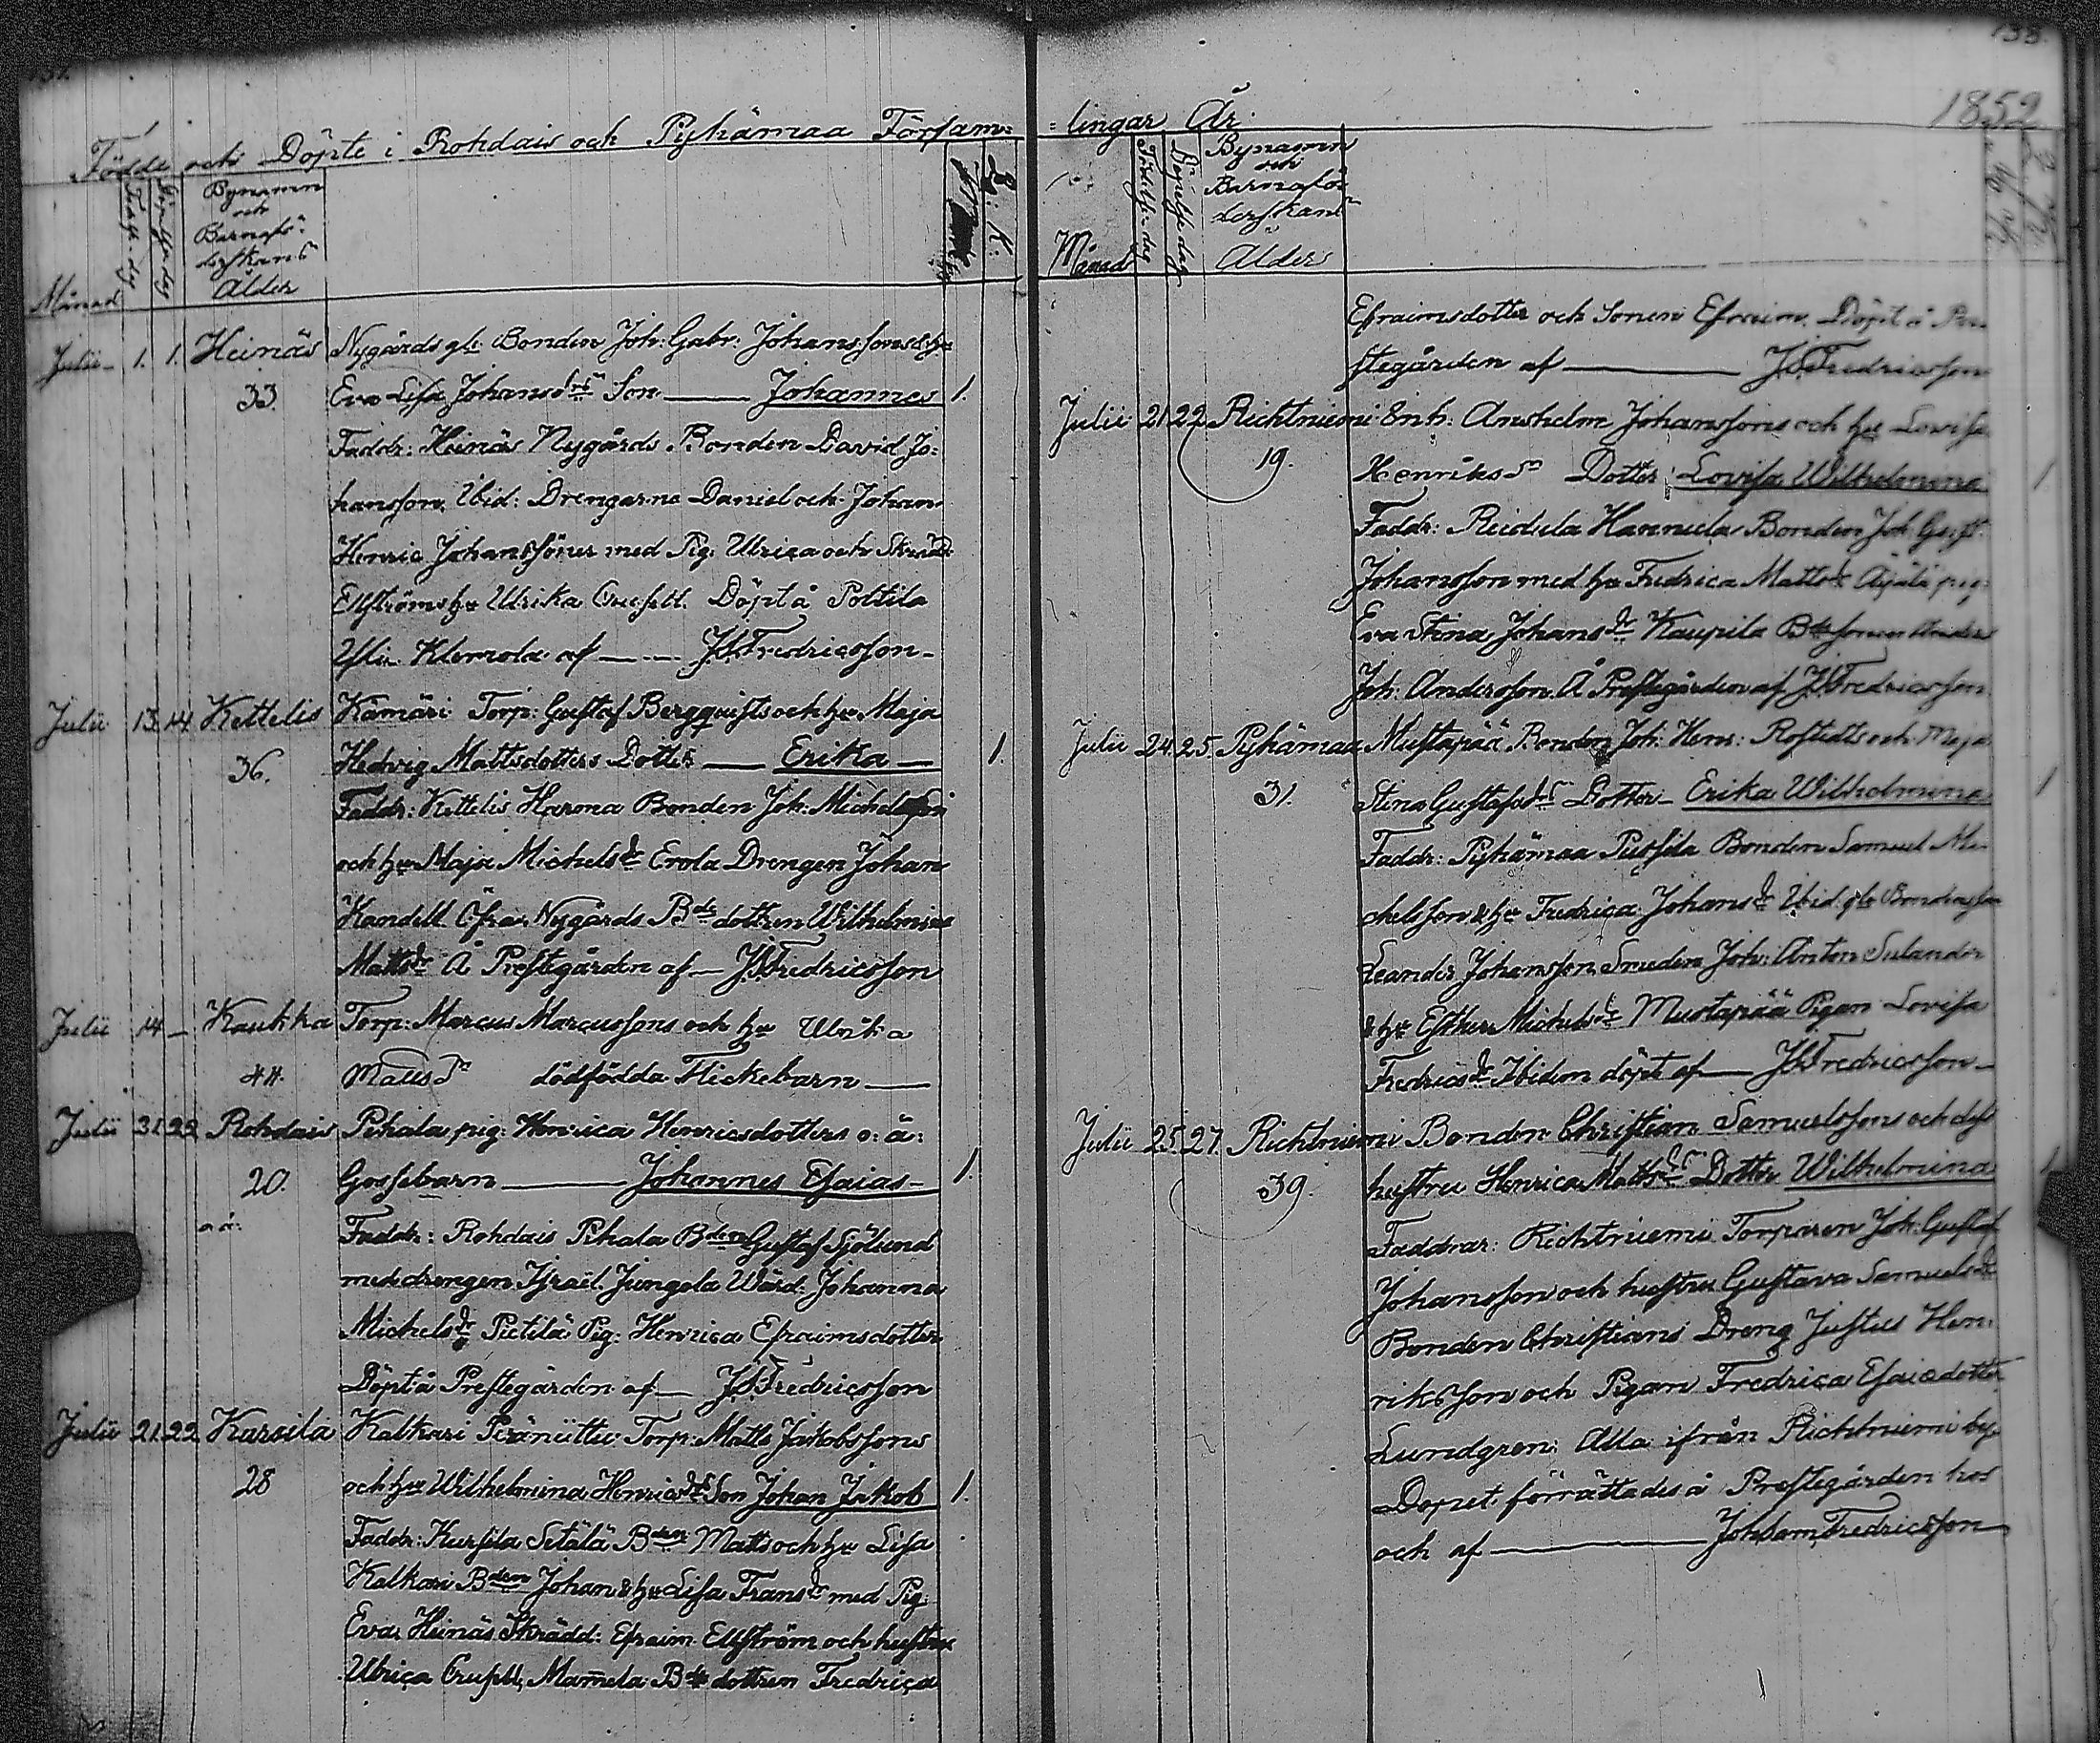 133
1852
Födde och Döpte i Rohdais och Pyhämaa Försam=
=lingar År
Månad
Födelse-dag
Döpelse dag
Bynamn
och
Barnafö-
derskans
Ålder
Julii 1. 1. Heinäs Nygårds gle Bonden Joh: Gabr: Johanssons & hu
33. Eva Lisa Johansdrs Son Johannes 1.
Faddr: Heinäs Nygårds Bonden David Jo-
hansson, Ibid: Drengarne Daniel och Johan
Henric Johanssöner med Pig. Ulrica och Skrädd
Ellströms hu Ulrika Döpt å Poltila
Klemola af J. S. Fredricsson
Julii 13. 14. Kettelis Kämäri Torp: Gustaf Bergquists och hu Maja
36. Hedvig Mattsdotters Dotter Erika 1.
Faddr: Kettelis Harona Bonden Joh: Michelsson
och hu Maja Michelsdr Erola Drengen Johan
Kandell Öfra Nygårds Bde dottren Wilhelmina
Mattsdr Å Prestegården af J. S. Fredricsson
Julii 14 – Kaukka Torp: Marcus Marcussons och hu Ulrika
44. Mattsdr dödfödda Flickebarn
Julii 21. 22 Rohdais Pihala pig: Henrica Henricsdotters o: ä:
20. Gossebarn Johannes Esaias 1.
o ä: Faddr: Rohdais Pihala Bden Gustaf Sjölund
med drengen Israel. Jungola Wärd: Johanna
Michelsdr Pietilä Pig: Henrica Efraimsdotter
Döpt å Prestegården af J. S. Fredricsson
Julii 21. 22 Kursila Kalkari Peräniittu Torp: Matts Jakobssons
28 och hu Wilhelmina Henricsdrs Son Johan Jakob 1.
Faddr: Kursila Setälä Bden Matts och hu Lisa
Kalkari Bden Johan & hu Lisa Fransdr med Pig:
Eva, Heinäs Skrädd: Efraim Ellström och hustru
Ulrica Mamela Bde dottren Fredrica
Efraimsdotter och Sonen Efraim. Döpt å Pre-
stegården af J. S. Fredricsson
Julii 21. 22 Richtniemi Inh: Anshelm Johanssons och hu Lovisa
19. Henriksdr Dotter: Lovisa Wilhelmina 1
Faddr: Reidula Hannula Bonden Joh: Gust.
Johansson med hu Fredrica Mattsdr Äijälä pig:
Eva Stina Johansdr Kaupila Bde sonen Anders
Joh: Andersson. Å Prestegården af J. S. Fredricsson
Julii 24. 25. Pyhämaa Mustapää Bonden Joh: Henr: Rostedts och Maja
31. Stina Gustafsdrs Dotter Erika Wilhelmina 1
Faddr: Pyhämaa Bonden Samuel Mi-
chelsson & hu Fredrica Johansdr Ibid: gle Bondesson
Leander Johansson Smeden Joh: Anton Sulander
& hu Esther Michelsdr Mustapää Pigan Lovisa
Fredricsdr Ibidem döpt af J. S. Fredricsson
Julii 25. 27. Richtniemi Bonden Christian Samuelssons och dess
39. hustru Henrica Mattsdrs Dotter Wilhelmina 1
Faddrar: Richtniemi Torparen Joh: Gustaf
Johansson och hustru Gustava Samuelsdr
Bonden Christians Dreng Justus Hen-
riksson och Pigan Fredrica Esaiædotter
Lundgren: Alla ifrån Richtniemi by.
Dopet förrättades å Prestegården hos
och af Joh: Sam. Fredricsson